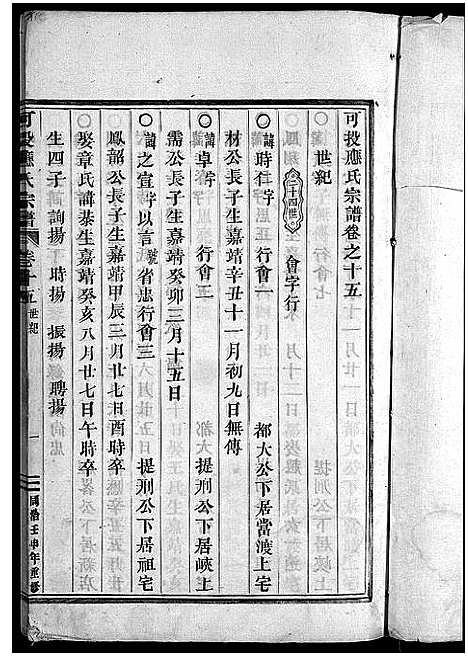 可投應氏宗譜卷之十五
世紀
二十四世 會字行
○諱時仁字 行會一 都大公下居當渡上宅
材公長子生嘉靖辛丑十一月初九日無傳
○諱卓字 行會二 提刑公下居峽上
需公長子生嘉靖癸卯三月十五日
○諱之宣字以言號省忠行會三 提刑公下居祖宅
鳳韶公長子生嘉靖甲辰三月廿七日酉時卒
娶章氏諱恭生嘉靖癸亥八月廿七日午時卒
生四子詢揚 時揚 振揚 聘揚
可投應氏宗譜 卷十五 世紀 一 同治壬申年重修